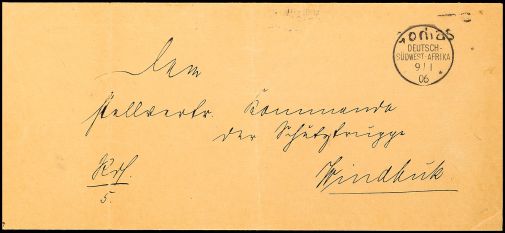 Gochas
DEUTSCH-
SÜDWEST-AFRIKA
9/1
06 *
Dem
stellvertr. Kommando
der Schutztruppe
Windhuk.
5.